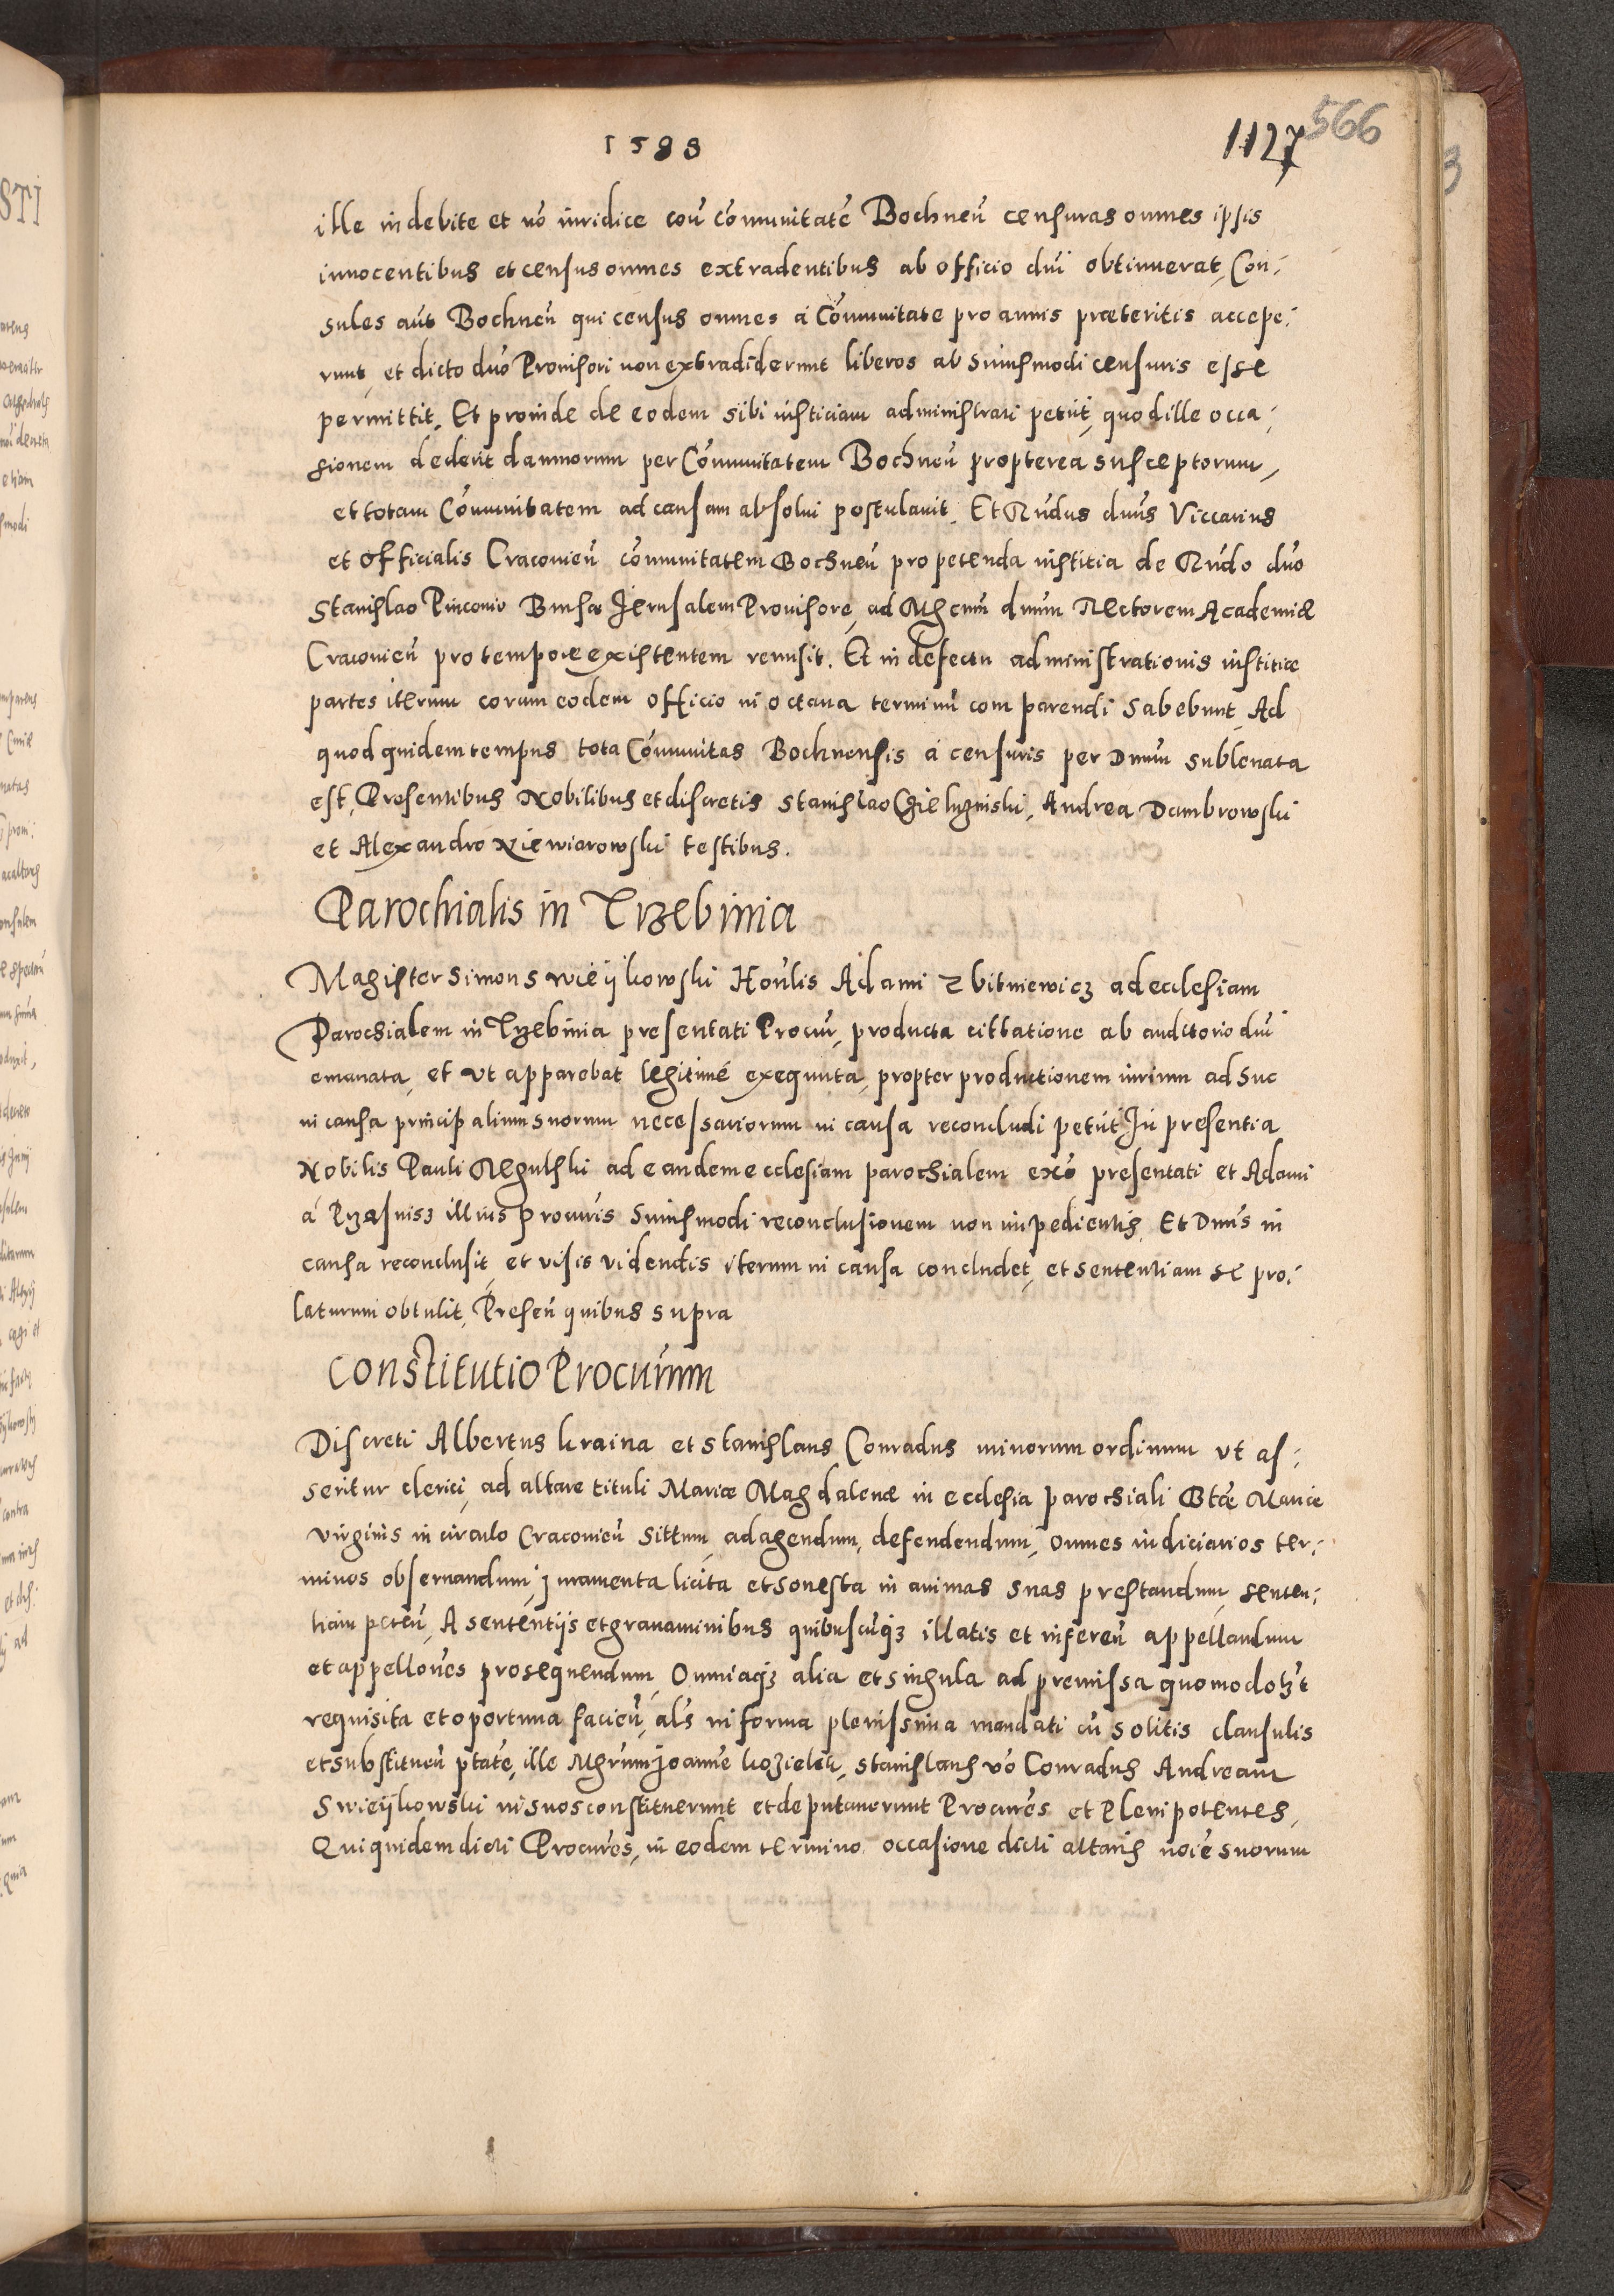 1588
1127 566
ille indebite et nõ iuridice coñ cõmunitatẽ Bochneñ censuras omnes ipsis
innocentibus et census omnes extradentibus ab officio dni obtinuerat, Con;
sules aũt Bochneñ qui census omnes á Cõmunitate pro annis præteritis accepe;
runt, et dicto dnõ Provisori non extradiderunt liberos ab huiusmodi censuris esse
permittit. Et proinde de eodem sibi iusticiam administrari petiit, quod ille occa;
sionem dederit damnorum per Cõmunitatem Bochneñ propterea susceptorum,
et totam Cõmunitatem ad causam absolvi postulavit. Et Rñdus dnũs Viccarius
et Officialis Cracovieñ cõmunitatem Bochneñ pro petenda iustitia de Rñdo dnõ
Stanislao Pinconio Bursæ Jerusalem Provisore, ad Mgcum dnum Rectorem Academiæ
Cracovieñ pro tempore existentem remisit. Et in defectu administrationis iustitiæ
partes iterum coram eodem officio in octava terminũ comparendi habebunt, Ad
quod quidem tempus tota Cõmunitas Bochnensis á censuris per Dnum sublevata
est, Presentibus Nobilibus et discretis Stanislao Gielugniski, Andrea Dambrowski
et Alexandro Niewiarowski testibus.
Parochialis in Trzebinia
Magister Simon Swieijkowski Hoñlis Adami Zbitniewicz ad ecclesiam
Parochialem in Trzebinia presentati Procur, producta cittatione ab auditorio dni
emanata, et ut apparebat legitimé exequuta, propter productionem iurium adhuc
in causa principalium suorum necessariorum in causa reconcludi petiit In presentia
Nobilis Pauli Regulski ad eandem ecclesiam parochialem exõ presentati et Adami
á Przasnisz illius procuris huiusmodi reconclusionem non impedientis, Et Dnus in
causa reconclusit, et visis videndis iterum in causa concludet, et sententiam se pro;
laturum obtulit, Preseñ quibus supra
Constitutio Procurum
Discreti Albertus kraina et Stanislaus Conradus minorum ordinum ut as;
seritur clerici, ad altare tituli Mariæ Magdalenæ in ecclesia parochiali Btæ Mariæ
virginis in circulo Cracovieñ sittum, ad agendum, defendendum, omnes iudiciarios ter;
minos observandum, juramenta licita et honesta in animas suas prestandum, senten;
tiam peteñ, A sententijs et gravaminibus quibuscũqз illatis et infereñ appellandum
et appellones prosequendum, Omniaqз alia et singula ad premissa quomodolзt
requisita et oportuna facieñ, als in forma plenissima mandati cũ solitis clausulis
et substitueñ ptatẽ, ille Mgrum Joannẽ kozielek, Stanislaus võ Conradus Andream
Swieijkowski in suos constituerunt et deputaverunt Procures et Plenipotentes,
Qui quidem dicti Procures, in eodem termino occasione dicti altaris noiẽ suorum